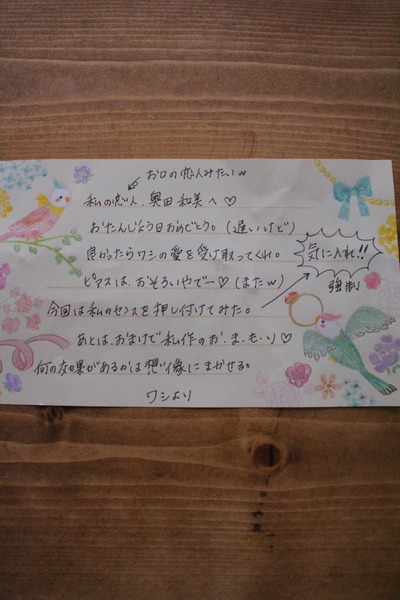 お口の恋人みたいw
私の恋人、奥田和美へ♡
おたんじょう日おめでとう。(遅いけど)
良かったらワシの愛を受け取ってくれ。
ピアスは、おそろいやでー♡(またw)
気に入れ!!
強制
今回は私のセンスを押し付けてみた。
あとは、おまけで私作のお.ま.も.り♡
何の効果があるかは想像にまかせる。
ワシより